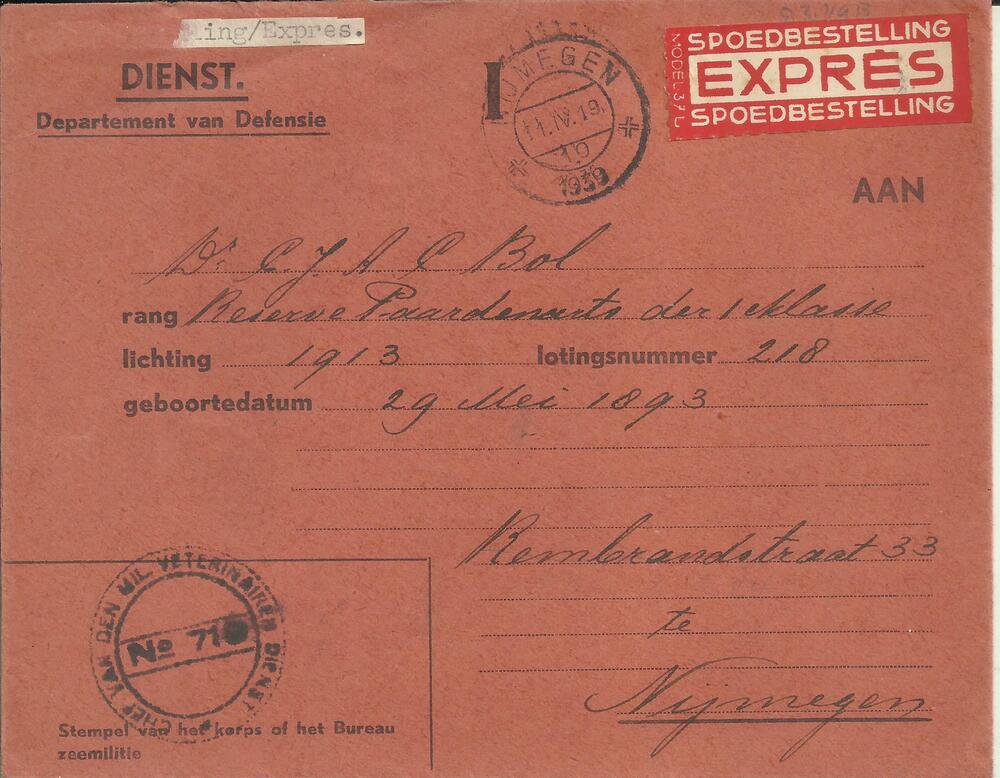 ling/Expres.
DIENST.
Departement van Defensie
NIJMEGEN
11.IV.19
19
1939
SPOEDBESTELLING
EXPRÈS
SPOEDBESTELLING
MODEL 37L
AAN
Dr C. J. A C Bol
rang Reserve Paardenarts der 1 Klasse
lichting 1913 lotingsnummer 218
geboortedatum 29 Mei 1893
Rembrandstraat 33
te
Nijmegen
CHEF VAN DEN MIL. VETERINAIREN DIENST
No 71
Stempel van het korps of het Bureau
zeemilitie